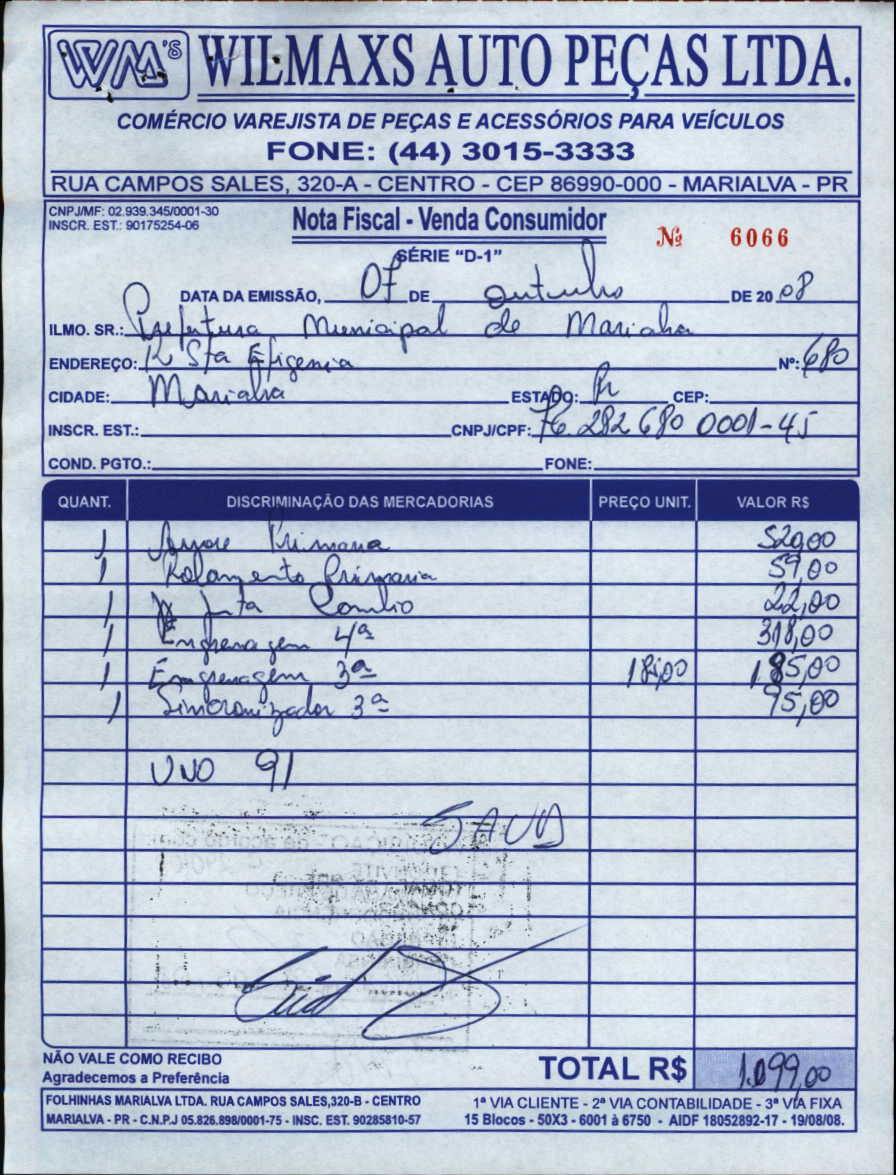 WM'S WILMAXS AUTO PEÇAS LTDA.
COMÉRCIO VAREJISTA DE PEÇAS E ACESSÓRIOS PARA VEÍCULOS
FONE: (44) 3015-3333
RUA CAMPOS SALES, 320-A - CENTRO - CEP 86990-000 - MARIALVA - PR
CNPJ/MF: 02.939.345/0001-30
INSCR. EST.: 90175254-06
Nota Fiscal - Venda Consumidor
Nº 6066
SÉRIE "D-1"
DATA DA EMISSÃO, 07 DE outubro DE 2008
ILMO. SR.: Prefeitura Municipal de Marialva
ENDEREÇO: R Sta Efigenia Nº: 680
CIDADE: Marialva ESTADO: Pr CEP:
INSCR. EST.: CNPJ/CPF: 76.282 680 0001-45
COND. PGTO.: FONE:
QUANT. DISCRIMINAÇÃO DAS MERCADORIAS PREÇO UNIT. VALOR R$
1 Arvore Primaria 520,00
1 Rolamento Primaria 59,00
1 Junta Cambio 22,00
1 Engrenagem 4ª 318,00
1 Engrenagem 3ª 185,00 185,00
1 Sincronizador 3ª 95,00
UNO 91
TOTAL R$ 1.099,00
NÃO VALE COMO RECIBO
Agradecemos a Preferência
FOLHINHAS MARIALVA LTDA. RUA CAMPOS SALES,320-B - CENTRO
MARIALVA - PR - C.N.P.J 05.826.898/0001-75 - INSC. EST. 90285810-57
1ª VIA CLIENTE - 2ª VIA CONTABILIDADE - 3ª VIA FIXA
15 Blocos - 50X3 - 6001 à 6750 - AIDF 18052892-17 - 19/08/08.